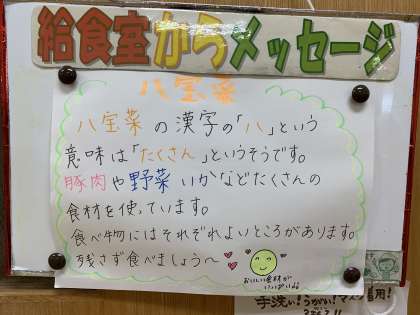 給食室からメッセージ
八宝菜
八宝菜の漢字の「八」という
意味は「たくさん」というそうです。
豚肉や野菜いかなどたくさんの
食材を使っています。
食べ物にはそれぞれよいところがあります。
残さず食べましょう〜
おいしい食材が
いっぱい
手洗い!うがい!マスク着用!